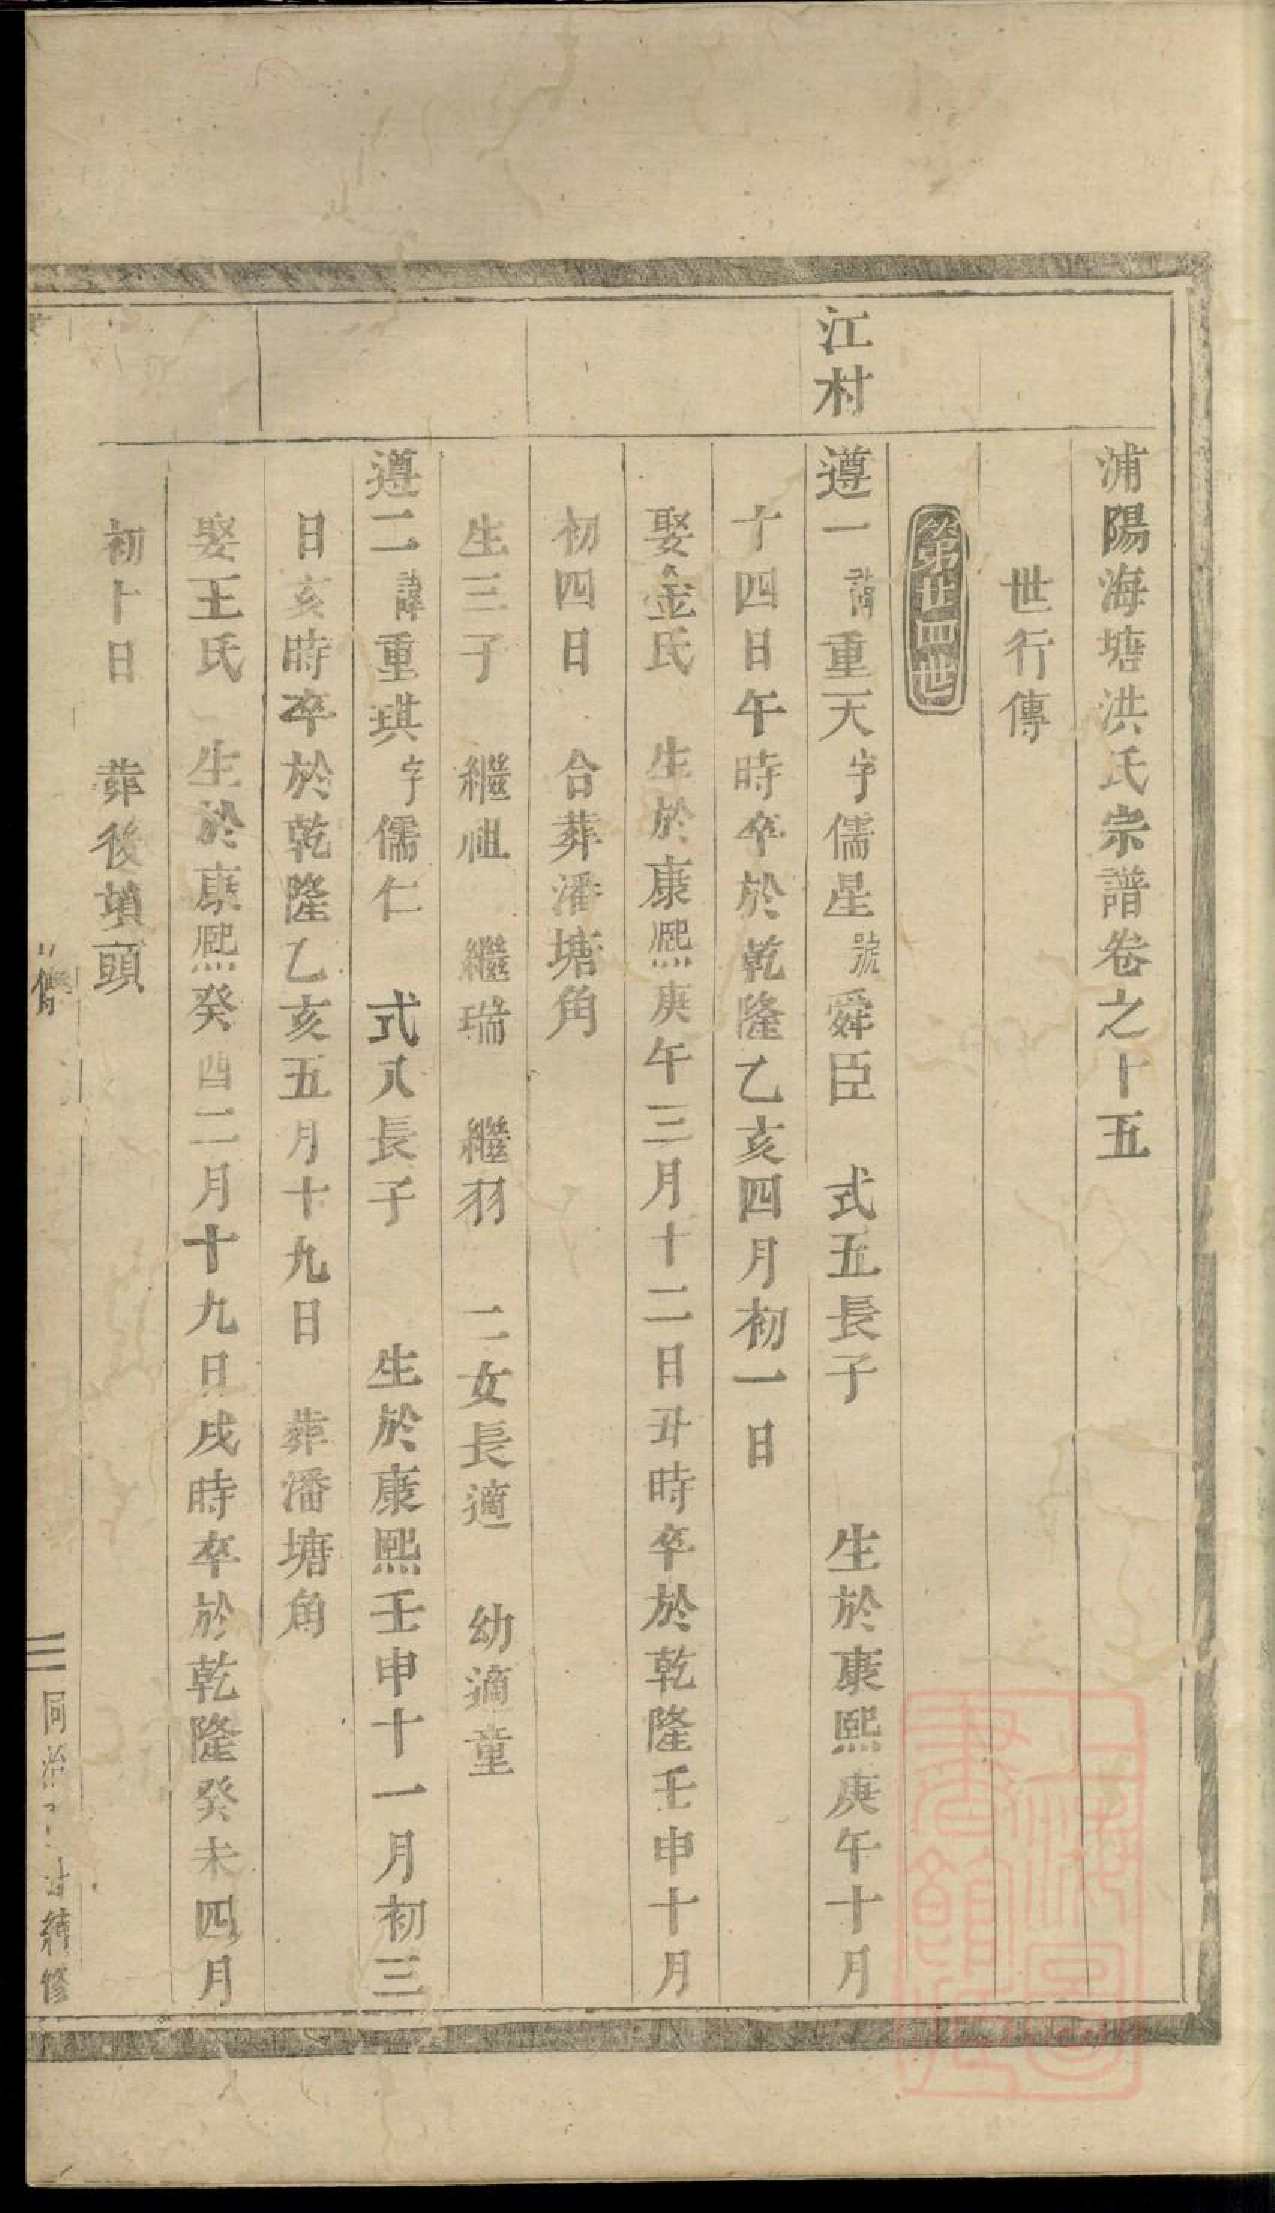 浦陽海塘洪氏宗譜卷之十五
世行傳
第廿四世
江村
遵一諱重天字儒星號舜臣 式五長子 生於康熙庚午十月
十四日午時卒於乾隆乙亥四月初一日
娶金氏 生於康熙庚午三月十二日丑時卒於乾隆壬申十月
初四日 合葬潘塘角
生三子 繼祖 繼瑞 繼羽 二女長適 幼適童
遵二諱重琪字儒仁 式八長子 生於康熙壬申十一月初三
日亥時卒於乾隆乙亥五月十九日 葬潘塘角
娶王氏 生於康熙癸酉二月十九日戌時卒於乾隆癸未四月
初十日 葬後墳頭
同治 續修
上海圖書館藏